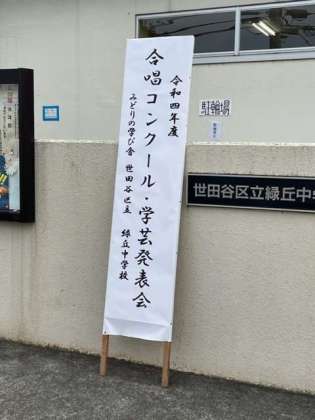 令和四年度
合唱コンクール・学芸発表会
みどりの学び舎 世田谷区立 緑丘中学校
駐輪場
世田谷区立緑丘中学